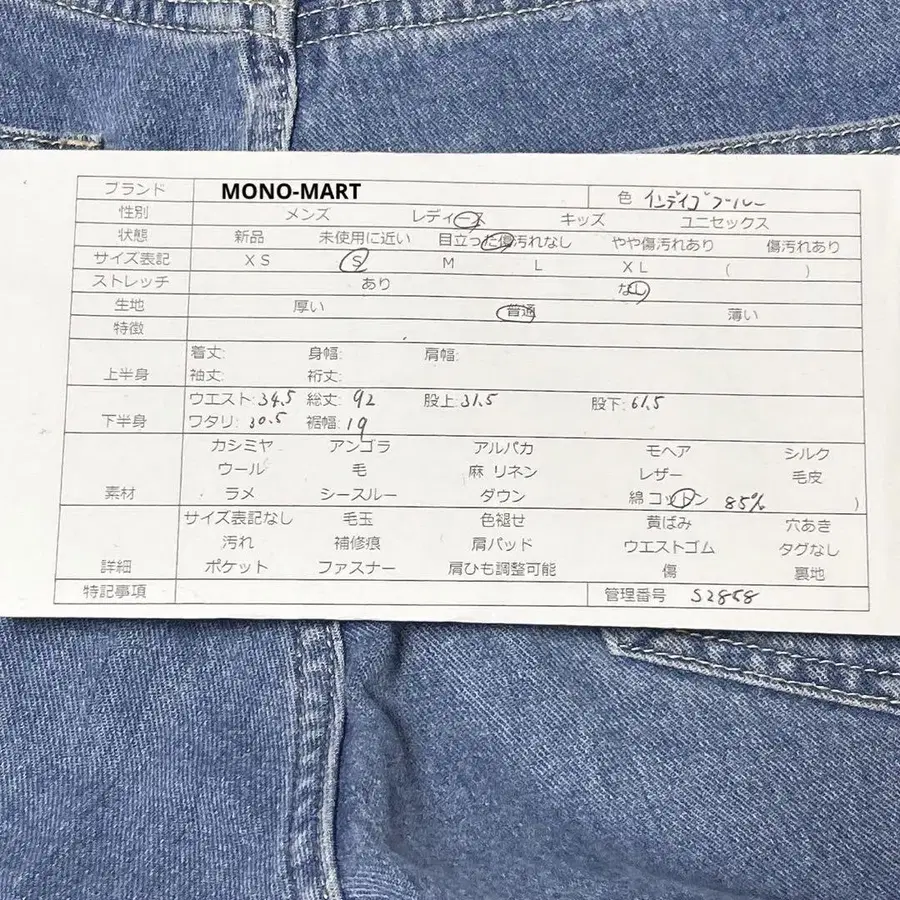 ブランド MONO-MART 色 インディゴブルー
性別 メンズ レディース キッズ ユニセックス
状態 新品 未使用に近い 目立った傷汚れなし やや傷汚れあり 傷汚れあり
サイズ表記 XS S M L XL ( )
ストレッチ あり なし
生地 厚い 普通 薄い
特徴
上半身 着丈: 身幅: 肩幅:
袖丈: 裄丈:
下半身 ウエスト: 34.5 総丈: 92 股上: 31.5 股下: 61.5
ワタリ: 30.5 裾幅: 19
素材 カシミヤ アンゴラ アルパカ モヘア シルク
ウール 毛 麻 リネン レザー 毛皮
ラメ シースルー ダウン 綿 コットン 85% )
詳細 サイズ表記なし 毛玉 色褪せ 黄ばみ 穴あき
汚れ 補修痕 肩パッド ウエストゴム タグなし
ポケット ファスナー 肩ひも調整可能 傷 裏地
特記事項 管理番号 S2858